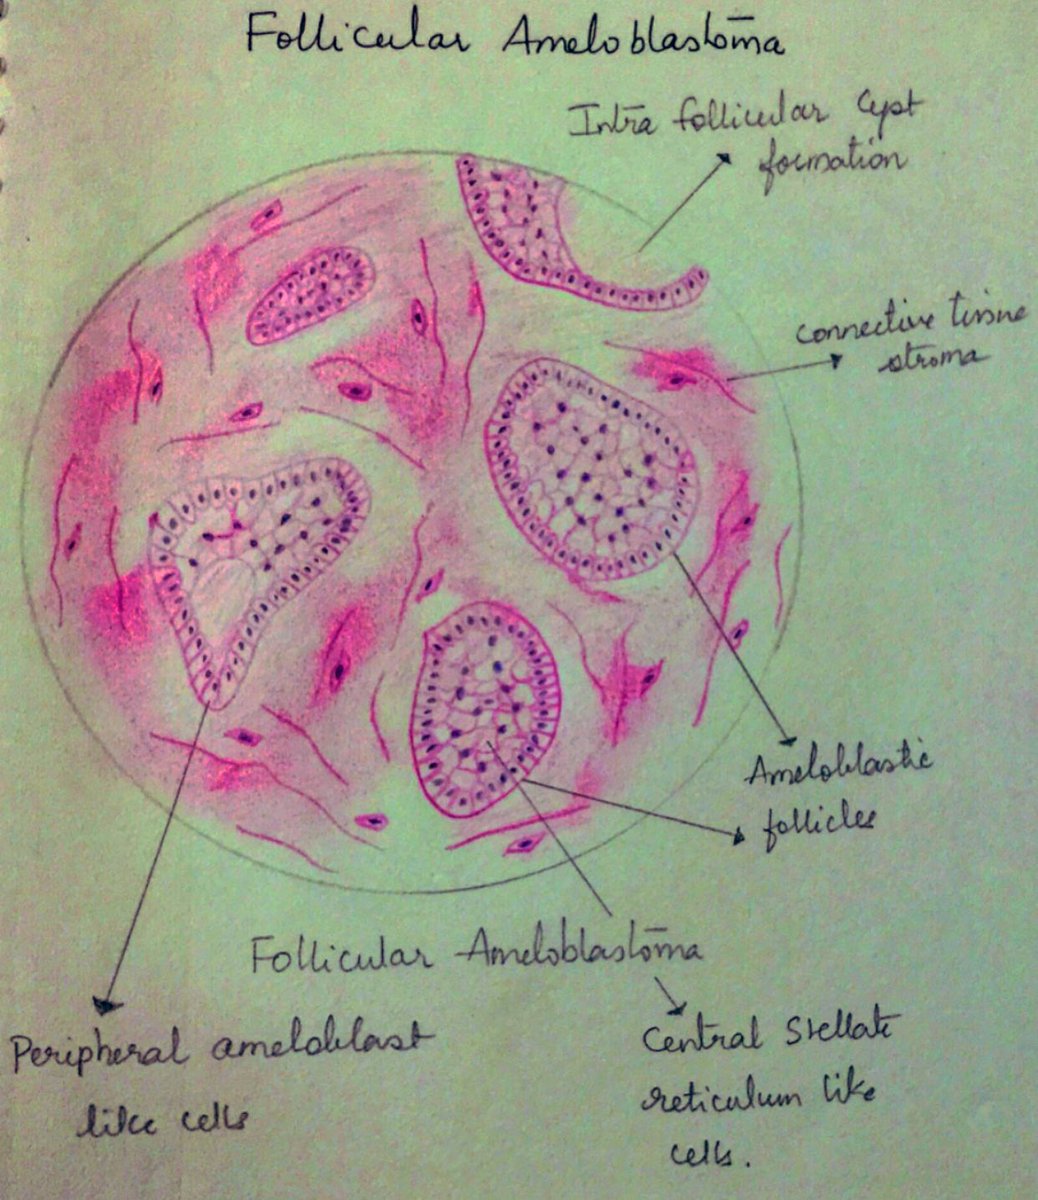 Follicular Ameloblastoma
Intra follicular Cyst
formation
connective tissue
stroma
Ameloblastic
follicles
Follicular Ameloblastoma
Peripheral ameloblast
like cells
Central Stellate
reticulum like
cells.